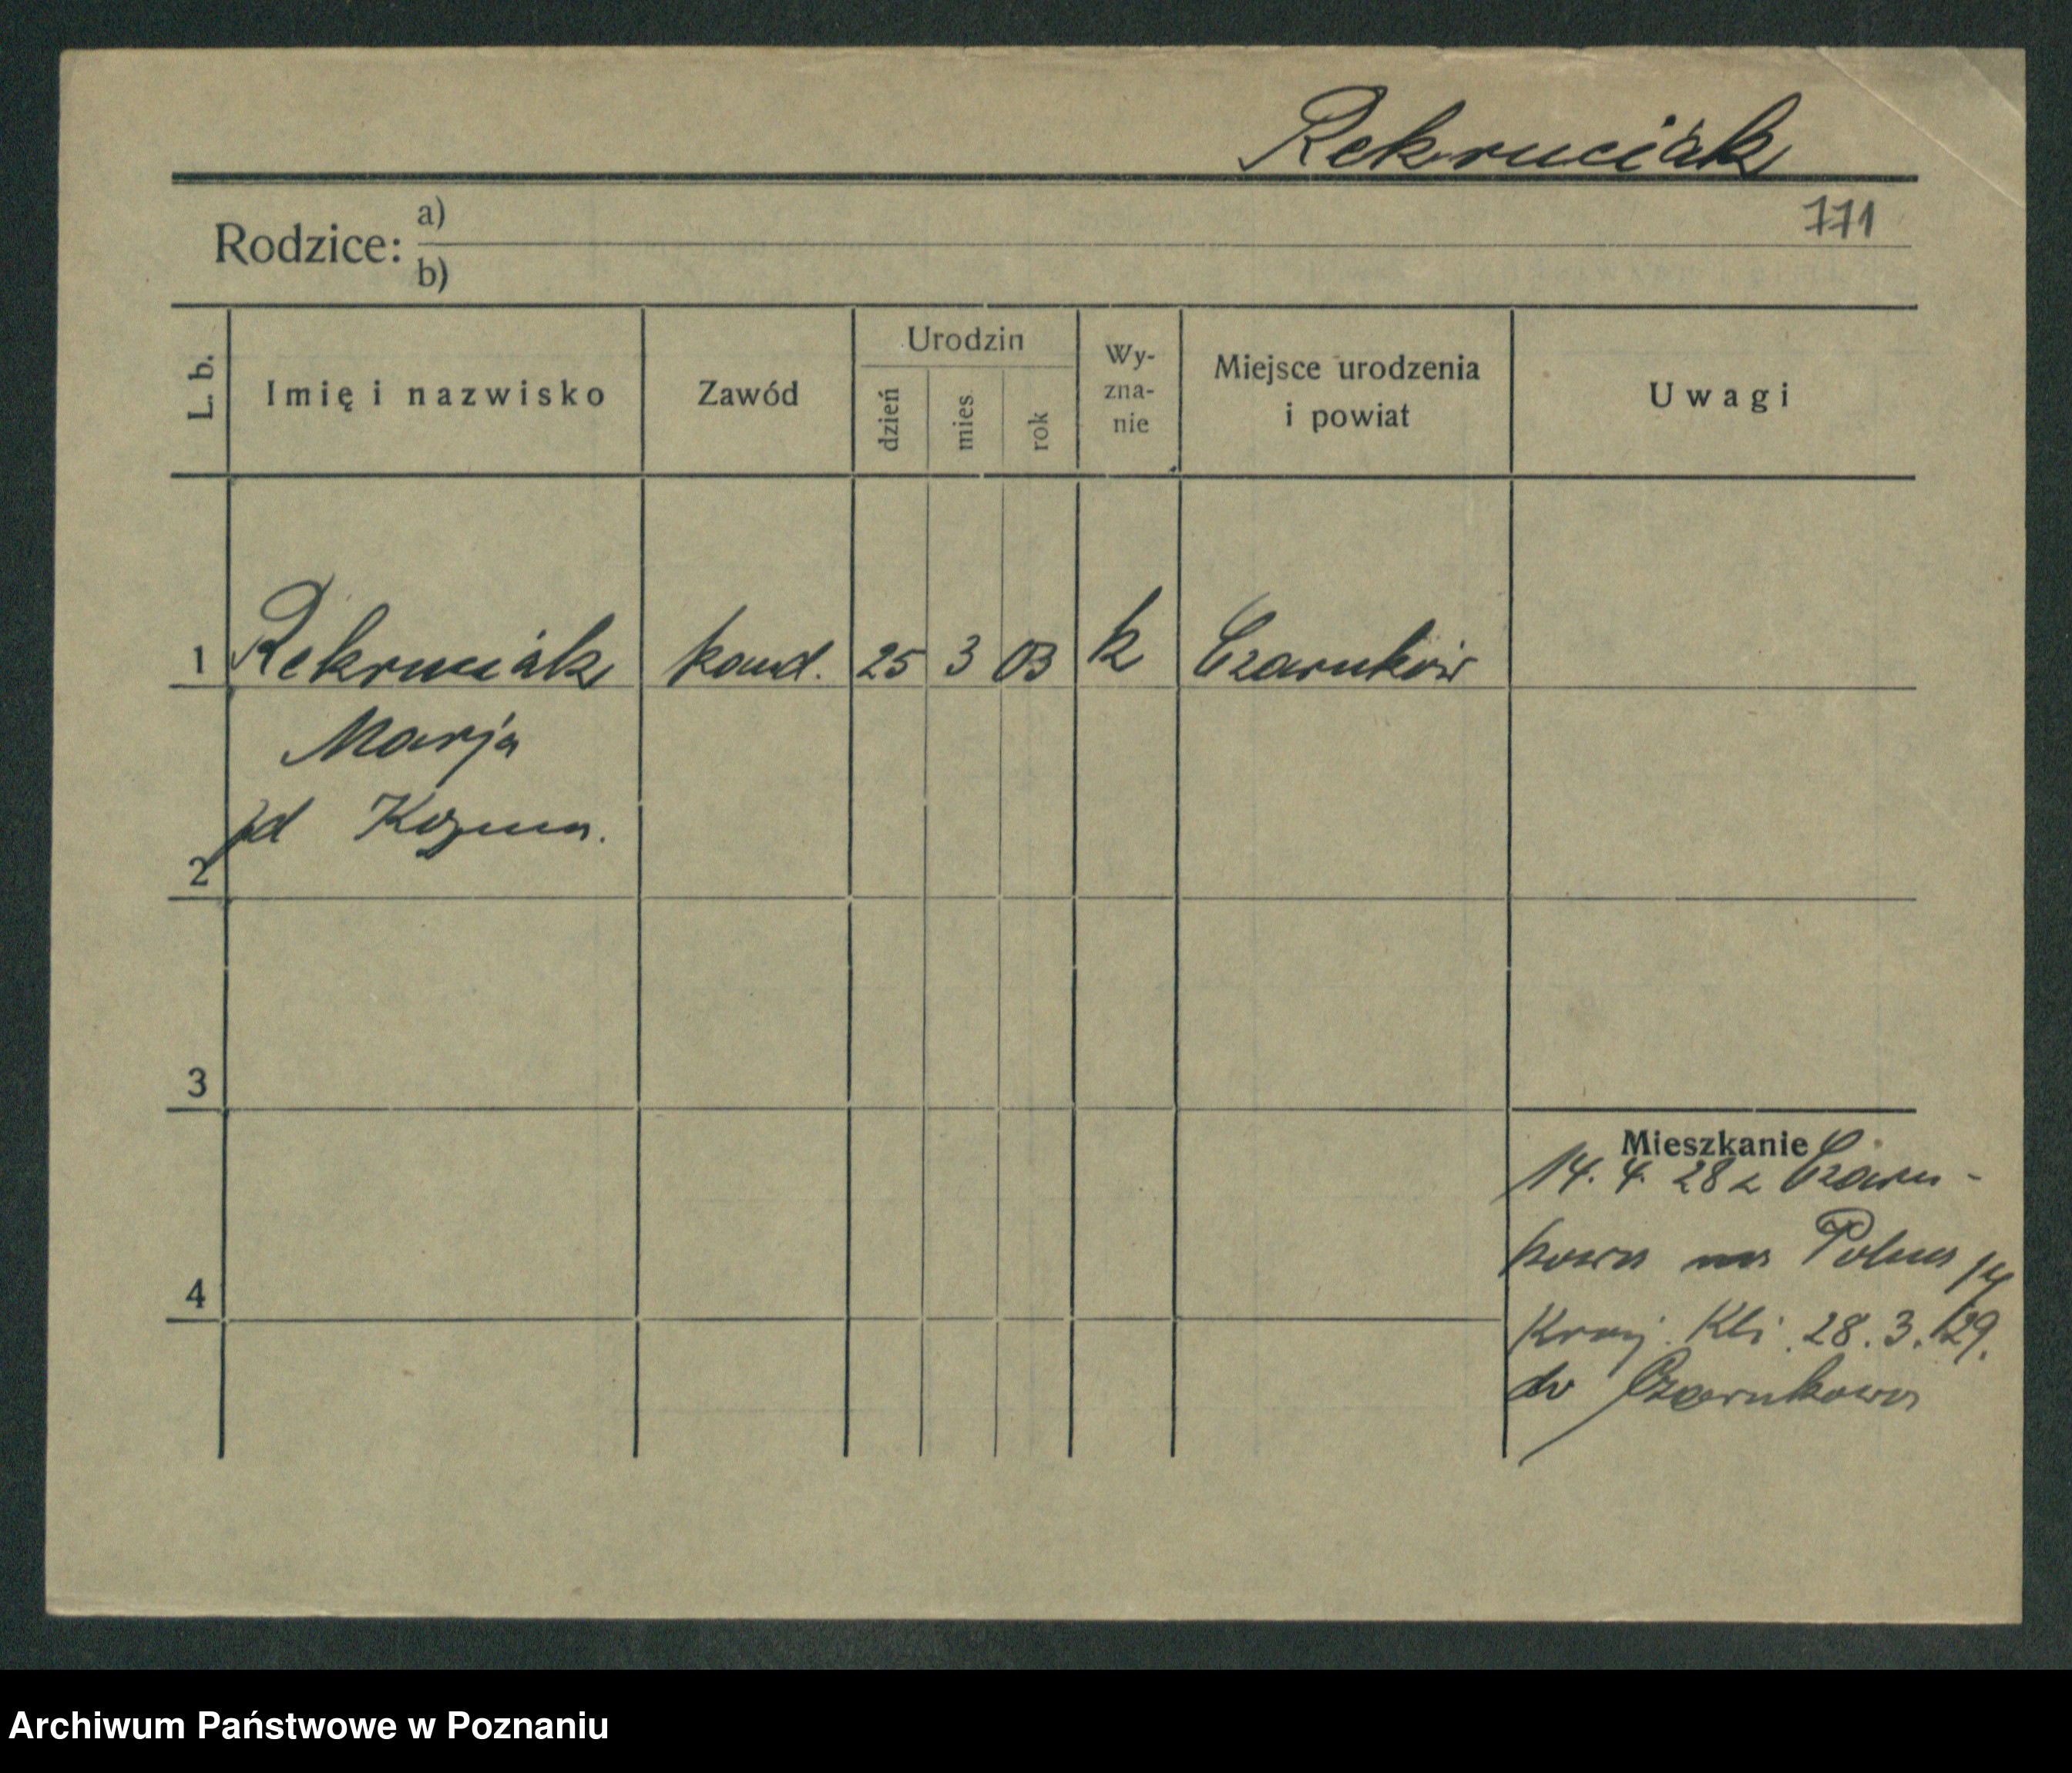 Rekruciak
771
Rodzice: a)
b)
L. b.
Imię i nazwisko
Zawód
Urodzin
dzień
mies.
rok
Wy-
zna-
nie
Miejsce urodzenia
i powiat
Uwagi
1 Rekruciak 25 3 03 k Czarnków
Marja
2
3
4
Mieszkanie
14. 4. 28 z Czarn-
kowa na Polna 14
28. 3. 29.
do Czarnkowa
Archiwum Państwowe w Poznaniu